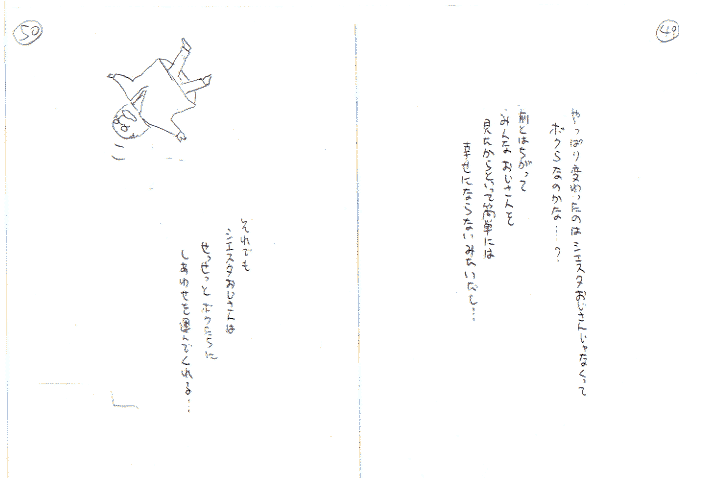 49
やっぱり変わったのはシエスタおじさんじゃなくって
ボクらなのかな…？
前とはちがって
みんなおじさんを
見たからといって簡単には
幸せにならないみたいだし…
50
それでも
シエスタおじさんは
せっせっとボクたちに
しあわせを運んでくれる…